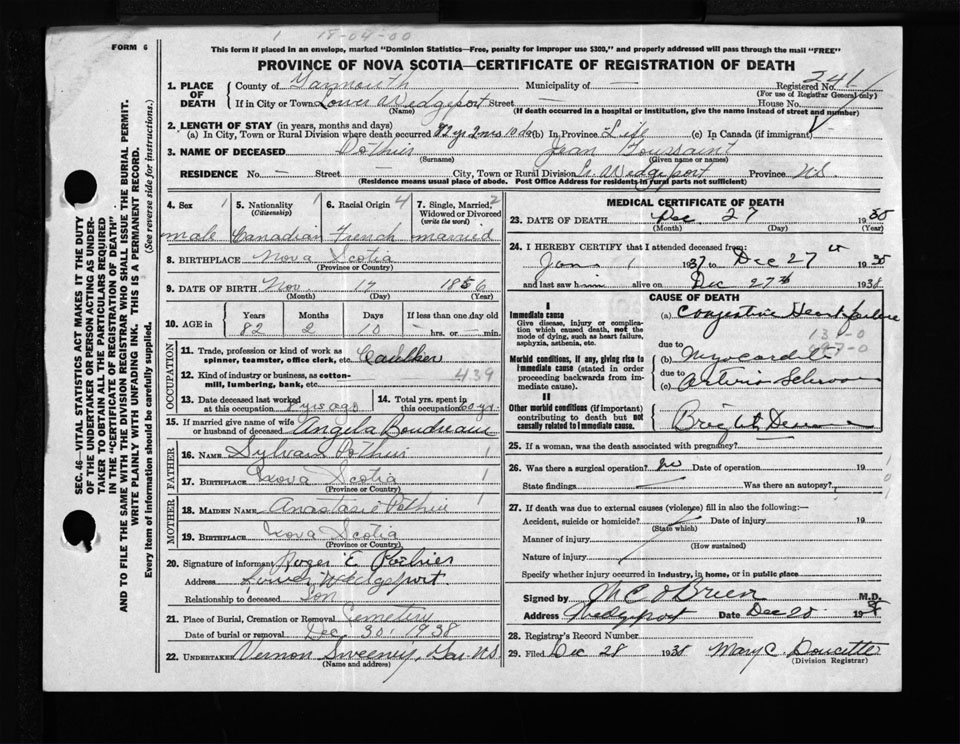 1 18-04-00
FORM 6
This form if placed in an envelope, marked "Dominion Statistics—Free, penalty for improper use $300," and properly addressed will pass through the mail "FREE"
PROVINCE OF NOVA SCOTIA—CERTIFICATE OF REGISTRATION OF DEATH
SEC. 46—VITAL STATISTICS ACT MAKES IT THE DUTY
OF THE UNDERTAKER OR PERSON ACTING AS UNDER-
TAKER TO OBTAIN ALL THE PARTICULARS REQUIRED
IN THE "CERTIFICATE OF REGISTRATION OF DEATH"
AND TO FILE THE SAME WITH THE DIVISION REGISTRAR WHO SHALL ISSUE THE BURIAL PERMIT.
WRITE PLAINLY WITH UNFADING INK. THIS IS A PERMANENT RECORD.
Every item of Information should be carefully supplied. (See reverse side for instructions.)
1. PLACE OF DEATH County of Yarmouth Municipality of — Registered No. 241
(For use of Registrar General only)
If in City or Town Lower Wedgeport Street — House No.
(Name) (If death occurred in a hospital or institution, give the name instead of street and number)
2. LENGTH OF STAY (in years, months and days)
(a) In City, Town or Rural Division where death occurred 82 yr 2 mos 10 da (b) In Province Life (c) In Canada (if immigrant)
3. NAME OF DECEASED Pothier Jean Toussaint
(Surname) (Given name or names)
RESIDENCE No. — Street City, Town or Rural Division L. Wedgeport Province N.S.
(Residence means usual place of abode. Post Office Address for residents in rural parts not sufficient)
4. Sex 1 5. Nationality 1 6. Racial Origin 4 7. Single, Married, 2
(Citizenship) Widowed or Divorced
(write the word)
male Canadian French married
8. BIRTHPLACE Nova Scotia
(Province or Country)
9. DATE OF BIRTH Nov. 17 1856
(Month) (Day) (Year)
10. AGE in Years Months Days If less than one day old
82 2 10 — hrs. or — min.
OCCUPATION
11. Trade, profession or kind of work as
spinner, teamster, office clerk, etc. Caulker
12. Kind of industry or business, as cotton-
mill, lumbering, bank, etc. 439
13. Date deceased last worked
at this occupation 8 yrs ago
14. Total yrs. spent in
this occupation 60 yr.
15. If married give name of wife
or husband of deceased Angela Boudreau
FATHER
16. NAME Sylvain Pothier 1
17. BIRTHPLACE Nova Scotia 1
(Province or Country)
MOTHER
18. MAIDEN NAME Anastasie Pothier 1
19. BIRTHPLACE Nova Scotia
(Province or Country)
20. Signature of informant Roger E. Pothier
Address Lower Wedgeport
Relationship to deceased Son
21. Place of Burial, Cremation or Removal Cemetery
Date of burial or removal Dec 30, 1938
22. UNDERTAKER Vernon Sweeney, Yar. N.S.
(Name and address)
MEDICAL CERTIFICATE OF DEATH
23. DATE OF DEATH Dec 27 1938
(Month) (Day) (Year)
24. I HEREBY CERTIFY that I attended deceased from:
Jan 1 1937 to Dec 27 1938
and last saw him alive on Dec 27th 1938
CAUSE OF DEATH
I
Immediate cause
Give disease, injury or complica-
tion which caused death, not the
mode of dying, such as heart failure,
asphyxia, asthenia, etc.
(a) Congestive Heart failure
Morbid conditions, if any, giving rise to
immediate cause (stated in order
proceeding backwards from im-
mediate cause).
due to
(b)
due to
(c)
II
Other morbid conditions (if important)
contributing to death but not
causally related to immediate cause.
Bright Disease
25. If a woman, was the death associated with pregnancy?
26. Was there a surgical operation? no Date of operation 19
State findings Was there an autopsy?
27. If death was due to external causes (violence) fill in also the following:—
Accident, suicide or homicide? Date of injury 19
(State which)
Manner of injury
(How sustained)
Nature of injury
Specify whether injury occurred in industry, in home, or in public place
Signed by M C O'Brien M.D.
Address Wedgeport Date Dec 28 19
28. Registrar's Record Number
29. Filed Dec 28 1938 Mary C. Doucette
(Division Registrar)